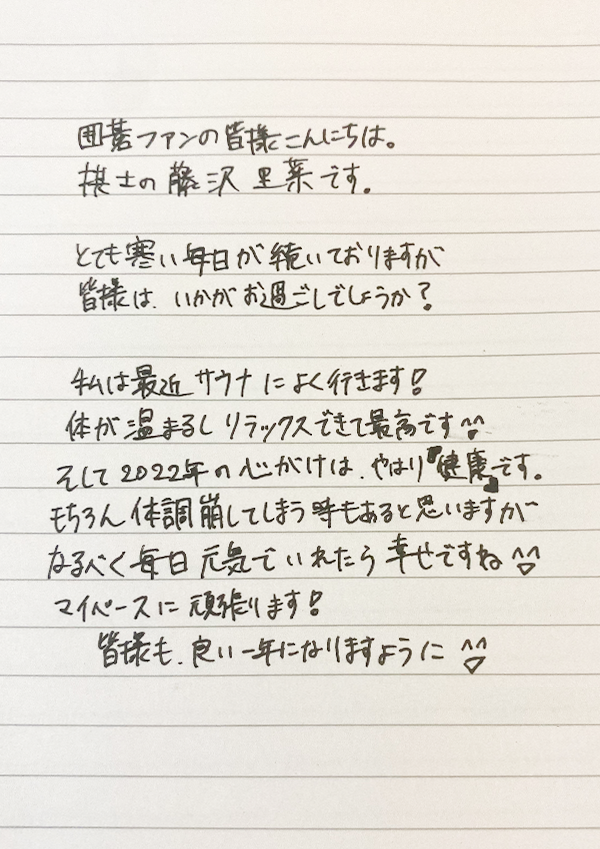 囲碁ファンの皆様こんにちは。
棋士の藤沢里菜です。
とても寒い毎日が続いておりますが
皆様は、いかがお過ごしでしょうか?
私は最近サウナによく行きます!
体が温まるしリラックスできて最高です^^
そして2022年の心がけは、やはり『健康』です。
もちろん体調崩してしまう時もあると思いますが
なるべく毎日元気でいれたら幸せですね^^
マイペースに頑張ります!
皆様も、良い一年になりますように^^